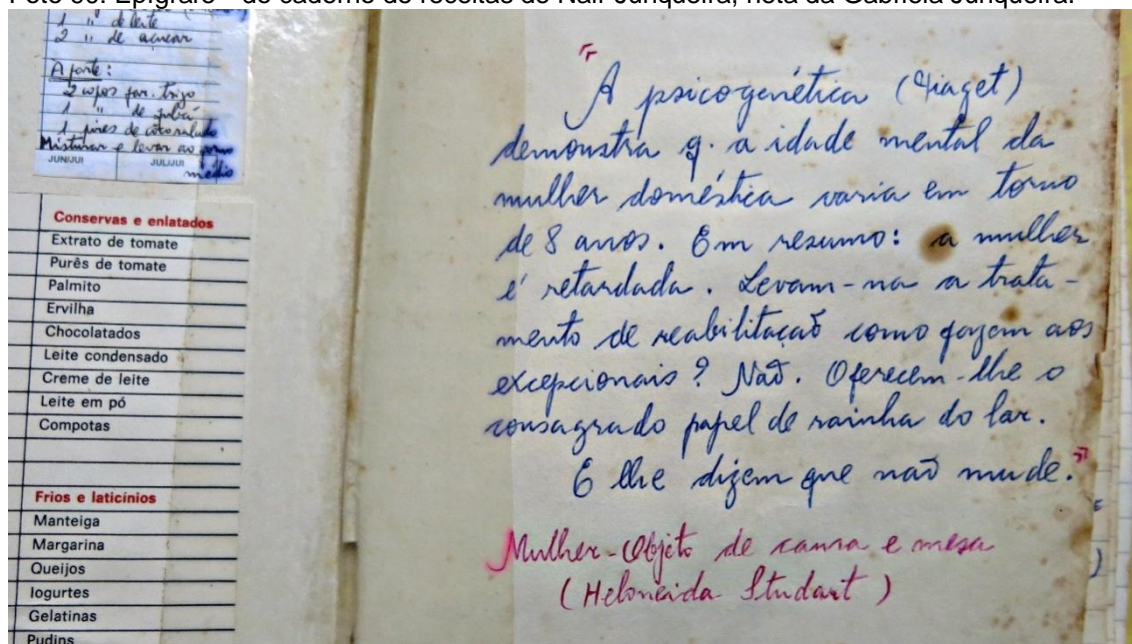 1 " de leite
2 " de açucar
A parte:
2 copos far. trigo
1 " de fubá
1 pires de coco ralado
Misturar e levar ao forno
JUN/JUI JUL/JUI
médio
Conservas e enlatados
Extrato de tomate
Purês de tomate
Palmito
Ervilha
Chocolatados
Leite condensado
Creme de leite
Leite em pó
Compotas
Frios e laticínios
Manteiga
Margarina
Queijos
Iogurtes
Gelatinas
Pudins
"A psicogenética (Piaget)
demonstra q. a idade mental da
mulher doméstica varia em torno
de 8 anos. Em resumo: a mulher
é retardada. Levam-na a trata-
mento de reabilitação como fazem aos
excepcionais? Não. Oferecem-lhe o
consagrado papel de rainha do lar.
E lhe dizem que não mude."
Mulher-Objeto de cama e mesa
(Heloneida Studart)